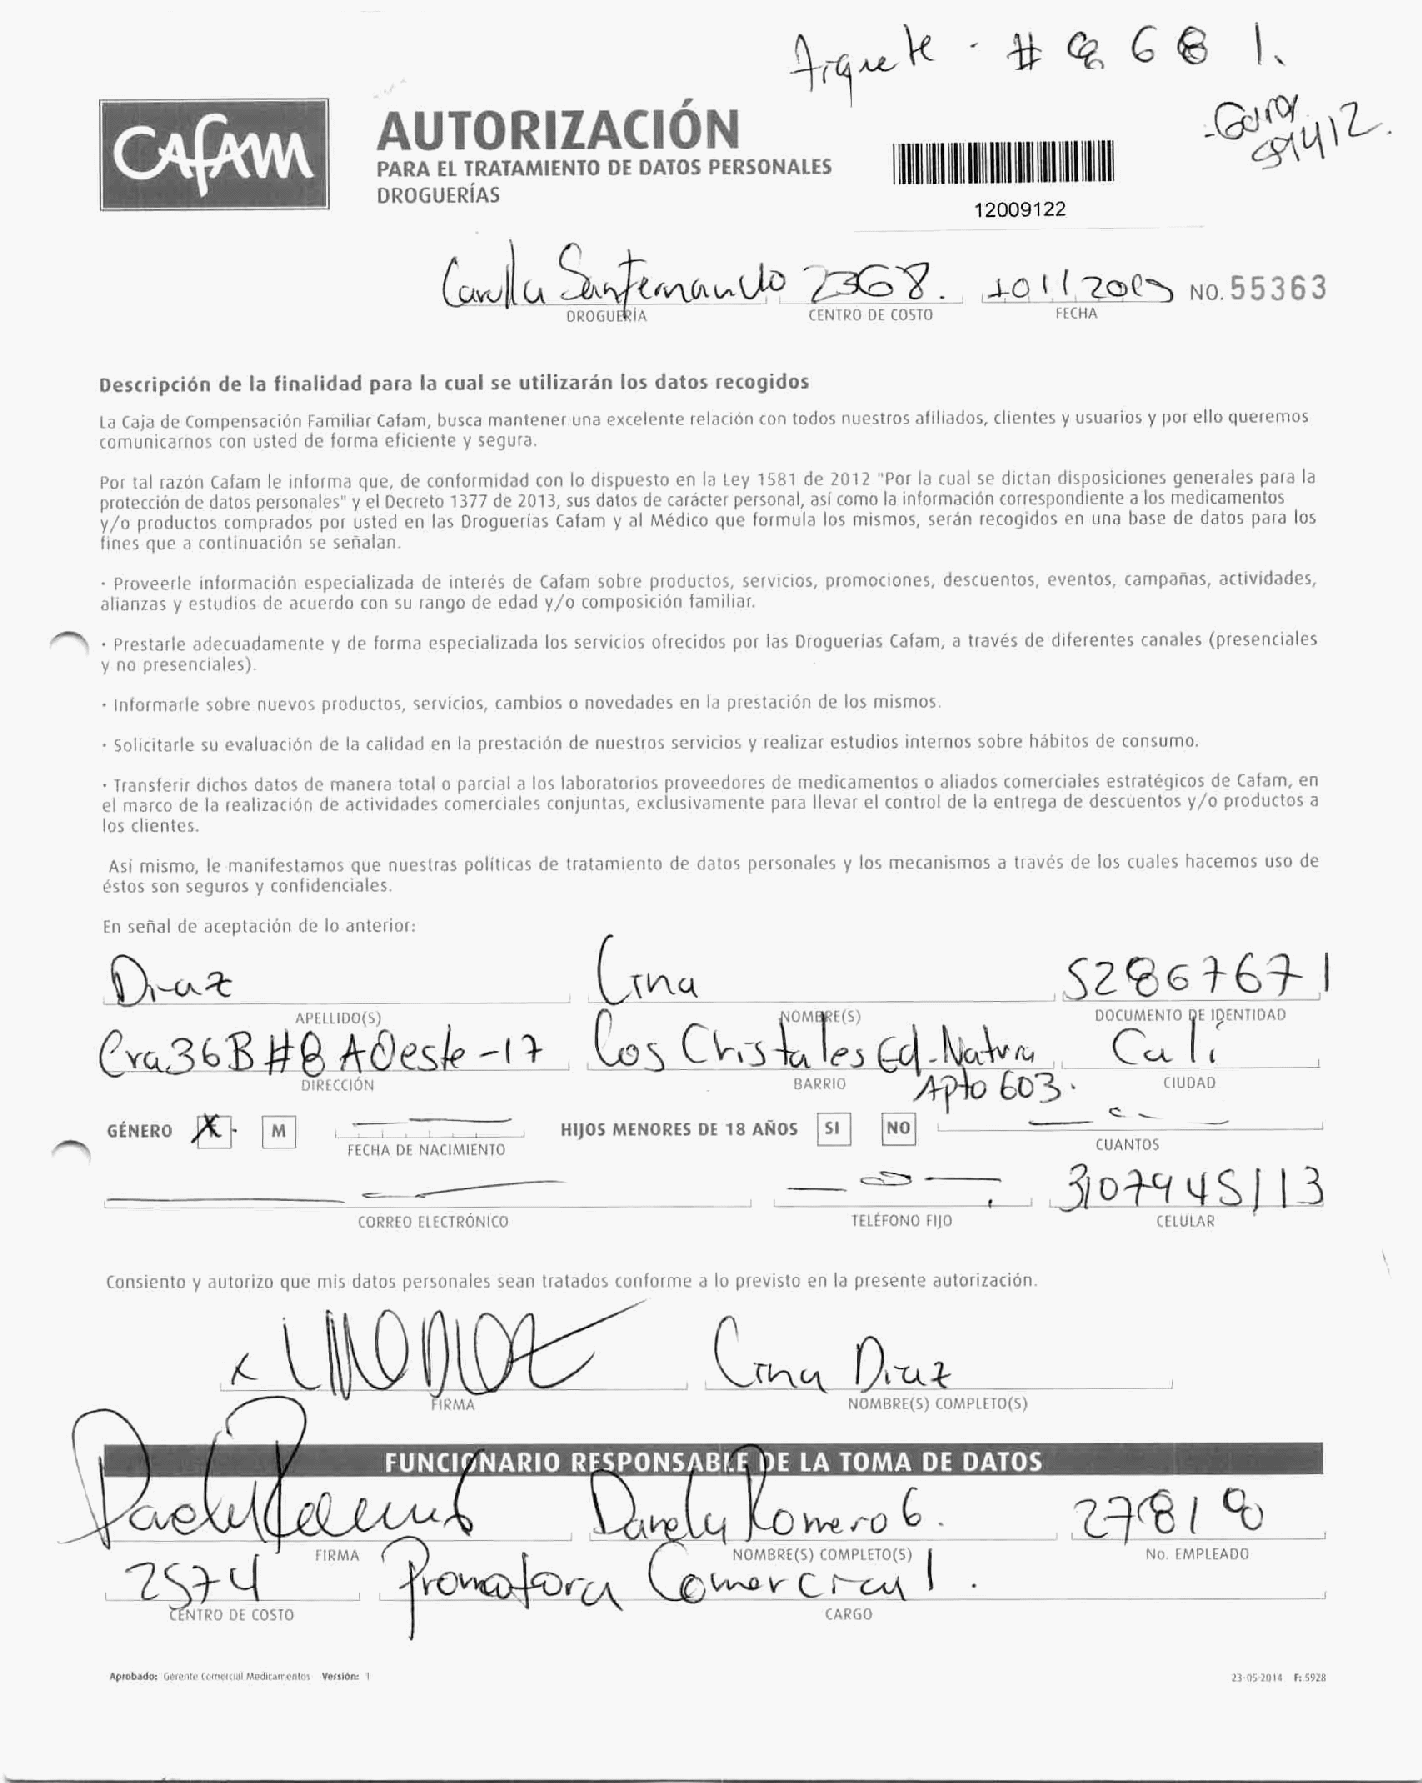 # 8681.
59412.
CAFAM
AUTORIZACIÓN
PARA EL TRATAMIENTO DE DATOS PERSONALES
DROGUERÍAS
12009122
Carulla Sanfernando 2368. NO. 55363
DROGUERÍA CENTRO DE COSTO FECHA
Descripción de la finalidad para la cual se utilizarán los datos recogidos
La Caja de Compensación Familiar Cafam, busca mantener una excelente relación con todos nuestros afiliados, clientes y usuarios y por ello queremos
comunicarnos con usted de forma eficiente y segura.
Por tal razón Cafam le informa que, de conformidad con lo dispuesto en la Ley 1581 de 2012 "Por la cual se dictan disposiciones generales para la
protección de datos personales" y el Decreto 1377 de 2013, sus datos de carácter personal, así como la información correspondiente a los medicamentos
y/o productos comprados por usted en las Droguerías Cafam y al Médico que formula los mismos, serán recogidos en una base de datos para los
fines que a continuación se señalan.
· Proveerle información especializada de interés de Cafam sobre productos, servicios, promociones, descuentos, eventos, campañas, actividades,
alianzas y estudios de acuerdo con su rango de edad y/o composición familiar.
· Prestarle adecuadamente y de forma especializada los servicios ofrecidos por las Droguerías Cafam, a través de diferentes canales (presenciales
y no presenciales).
· Informarle sobre nuevos productos, servicios, cambios o novedades en la prestación de los mismos.
· Solicitarle su evaluación de la calidad en la prestación de nuestros servicios y realizar estudios internos sobre hábitos de consumo.
· Transferir dichos datos de manera total o parcial a los laboratorios proveedores de medicamentos o aliados comerciales estratégicos de Cafam, en
el marco de la realización de actividades comerciales conjuntas, exclusivamente para llevar el control de la entrega de descuentos y/o productos a
los clientes.
Así mismo, le manifestamos que nuestras políticas de tratamiento de datos personales y los mecanismos a través de los cuales hacemos uso de
éstos son seguros y confidenciales.
En señal de aceptación de lo anterior:
Diaz Lina 52867671
APELLIDO(S) NOMBRE(S) DOCUMENTO DE IDENTIDAD
Cra36B#8AOeste-17 Los Christales Ed. Natura Cali
DIRECCIÓN BARRIO Apto 603. CIUDAD
GÉNERO X M HIJOS MENORES DE 18 AÑOS SI NO
FECHA DE NACIMIENTO CUANTOS
3107945113
CORREO ELECTRÓNICO TELÉFONO FIJO CELULAR
Consiento y autorizo que mis datos personales sean tratados conforme a lo previsto en la presente autorización.
x Lina Diaz
FIRMA NOMBRE(S) COMPLETO(S)
FUNCIONARIO RESPONSABLE DE LA TOMA DE DATOS
Darely Romero G. 27818
FIRMA NOMBRE(S) COMPLETO(S) No. EMPLEADO
2574 Promotora Comercial.
CENTRO DE COSTO CARGO
Aprobado: Gerente Comercial Medicamentos Versión: 1 23-05-2014 F: 5928